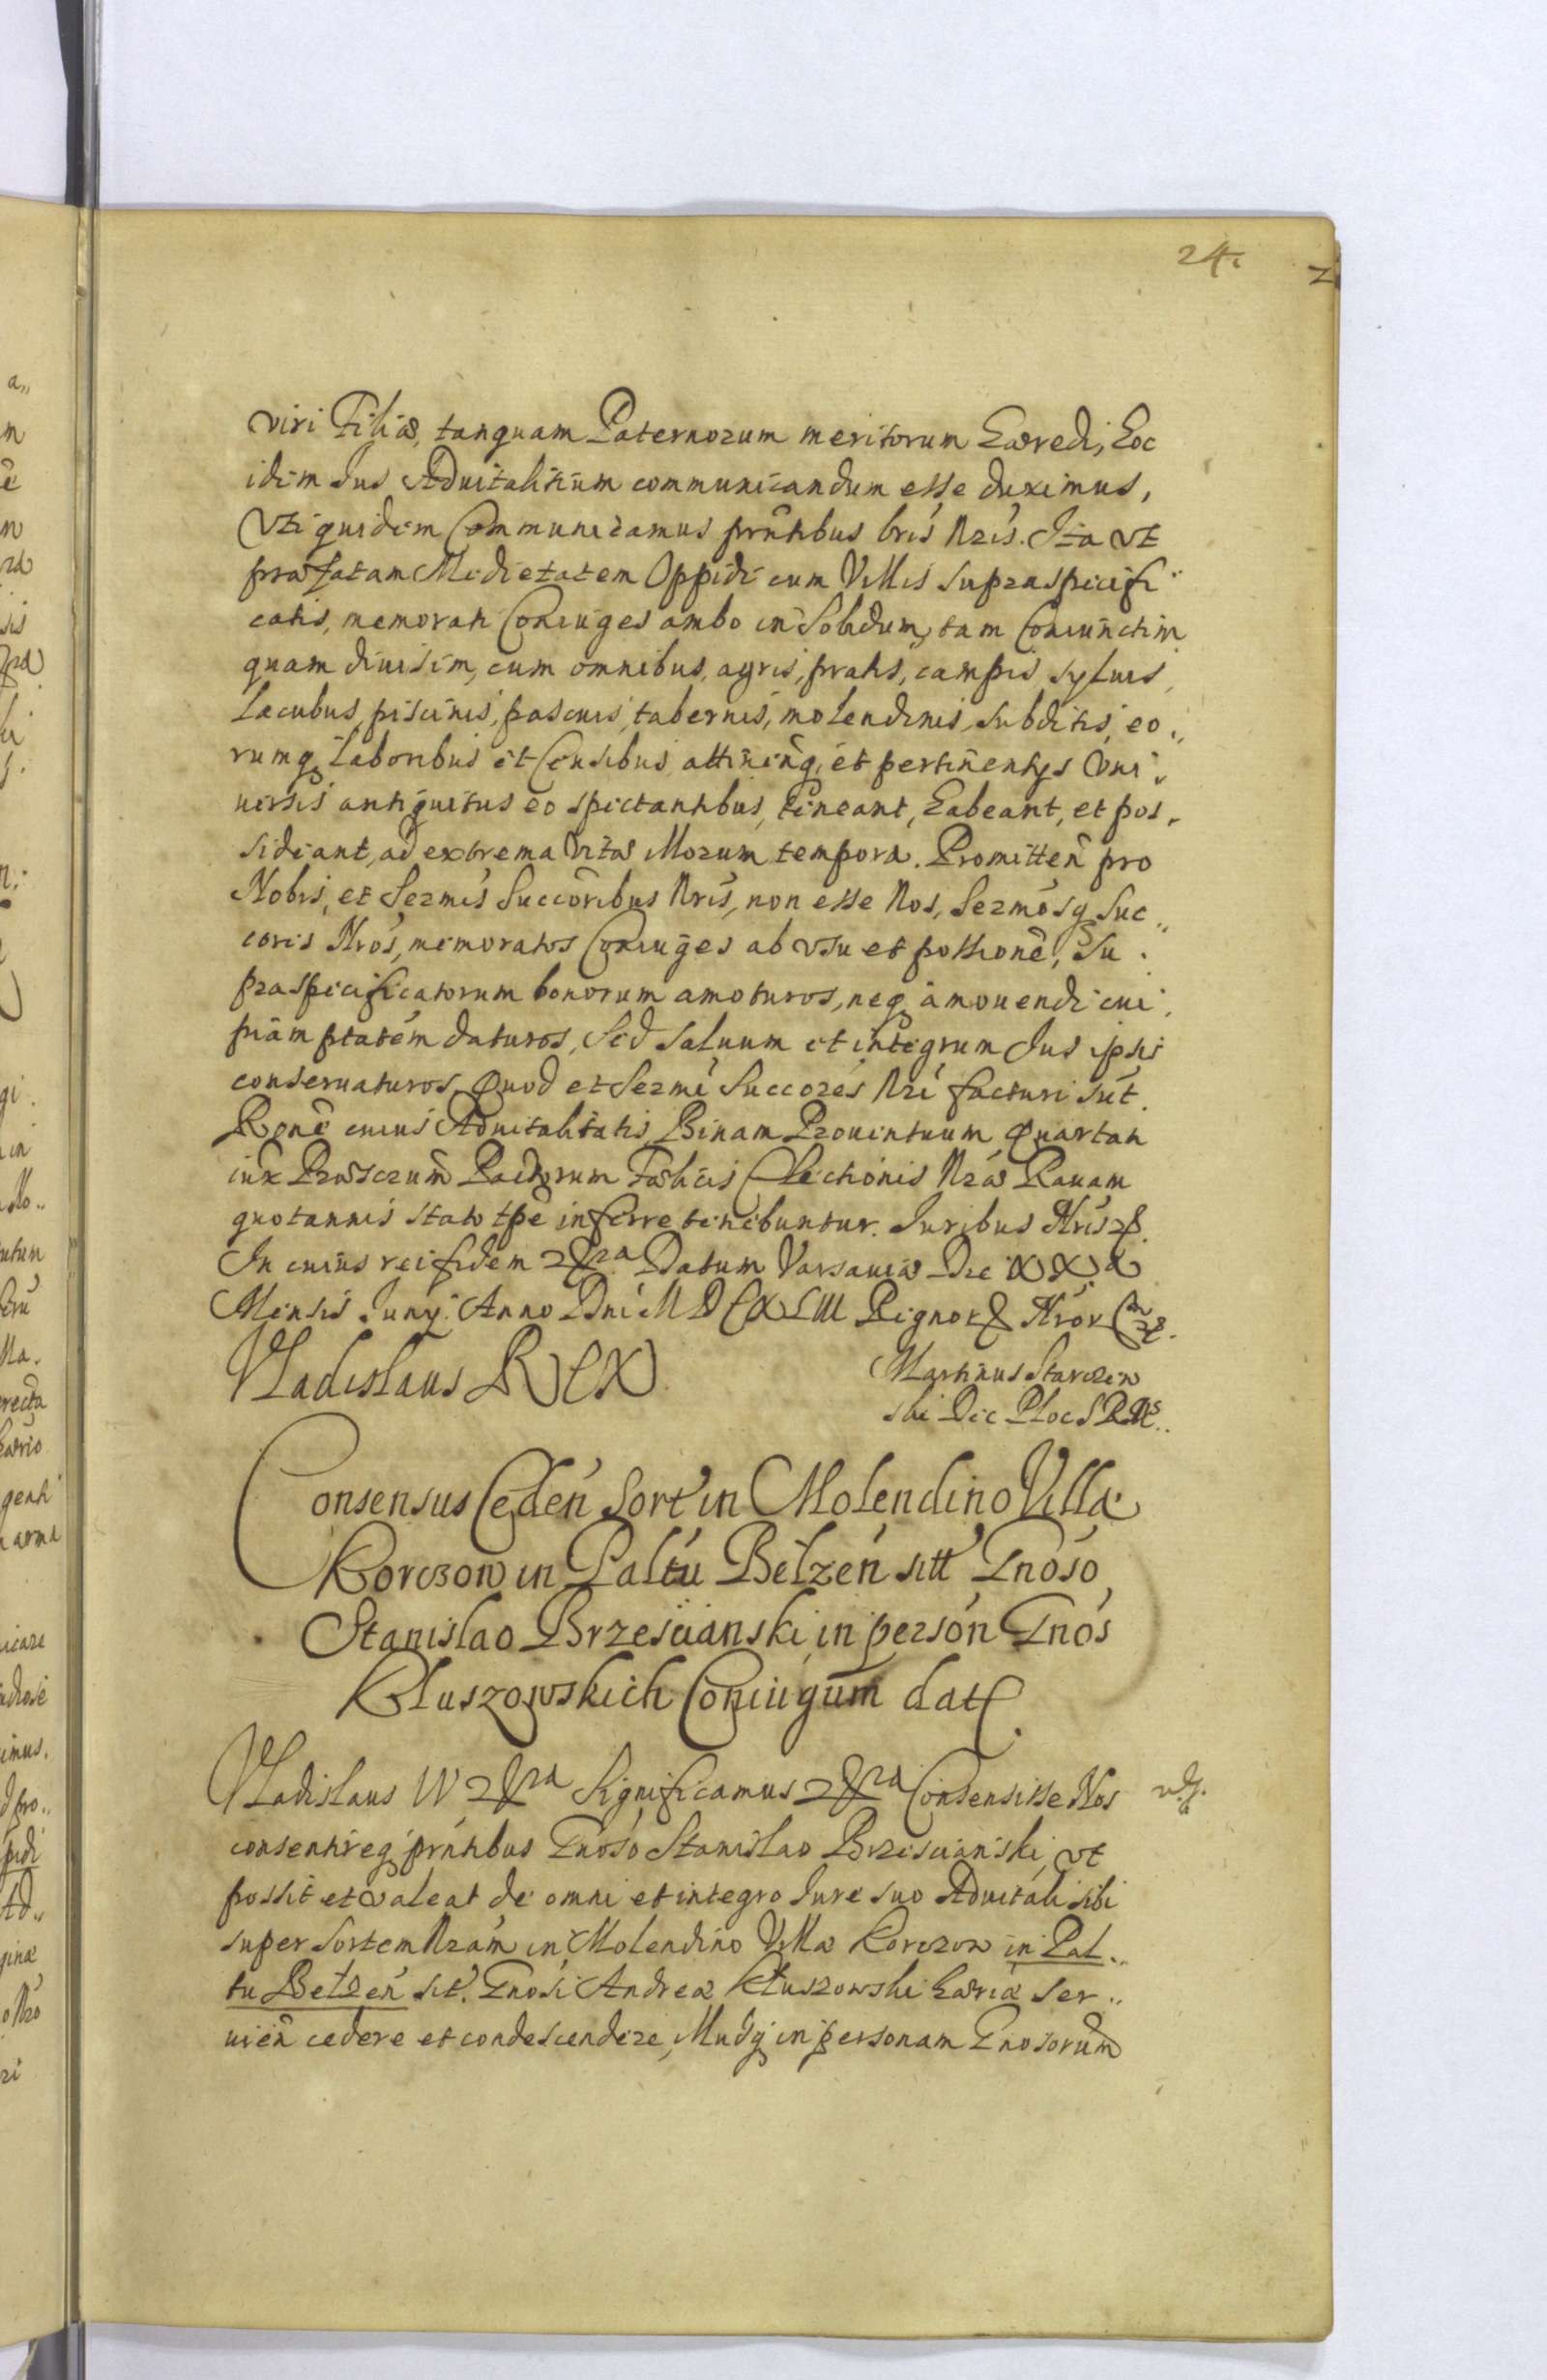 24.
viri Filiæ, tanquam Paternorum meritorum Hæredi, hoc
idem Jus Aduitalitium communicandum esse duximus,
Vti quidem Communicamus prñtibus lris Nris. Ita vt
præfatam Medietatem Oppidi cum Villis supraspecifi¨
catis, memorati Coniuges ambo in Solidum, tam Coniunctim
quam diuisim, cum omnibus, agris, pratis, campis, syluis,
Lacubus, piscinis, pascuis, tabernis, molendinis, subditis, eo„
rumq Laboribus et Censibus, attineñ, et pertinentijs Vni„
uersis antiquitus eo spectantibus, teneant, habeant, et pos„
sideant, ad extrema vitæ Illorum tempora. Promitteñ pro
Nobis, et Sermis Succoribus Nris, non esse Nos, Sermosq Suc„
cores Nros, memoratos Coniuges ab vsu et possione, Su„
praspecificatorum bonorum amoturos, neq amouendi cui„
piam ptatem daturos, Sed saluum et integrum Jus ipsis
conseruaturos, Quod et Sermi Succores Nri facturi sut.
Rone cuius Aduitalitatis Binam Prouentuum Quartam
iux Præscrum Pactorum Fælicis Electionis Nræ Rauam
quotannis stato tpe inferre tenebuntur. Juribus Nris
In cuius rei fidem Datum Varsauiæ Die XXX
Mensis Juny. Anno Dni MDCXLIII Regnor Nror
Vladislaus REX
Martinus Starczew
ski Dec Ploc S R Ms.
Consensus Ceden Sort in Molendino Villæ
Korczow in Paltu Belzen sitt Gnoso
Stanislao Brzescianski in person Gnos
Kluszowskich Coniugum dat.
Vladislaus IV Significamus Consensisse Nos
consentireq prntibus Gnoso Stanislao Brzescianski, vt
possit et valeat de omni et integro Jure suo Aduitali sibi
super Sortem Nram in Molendino Villæ Korczow in Pal„
tu Belzen sit. Gnosi Andreæ Kłuszowski hæriæ ser„
uien cedere et condescendere, Illudq in personam Gnosorum